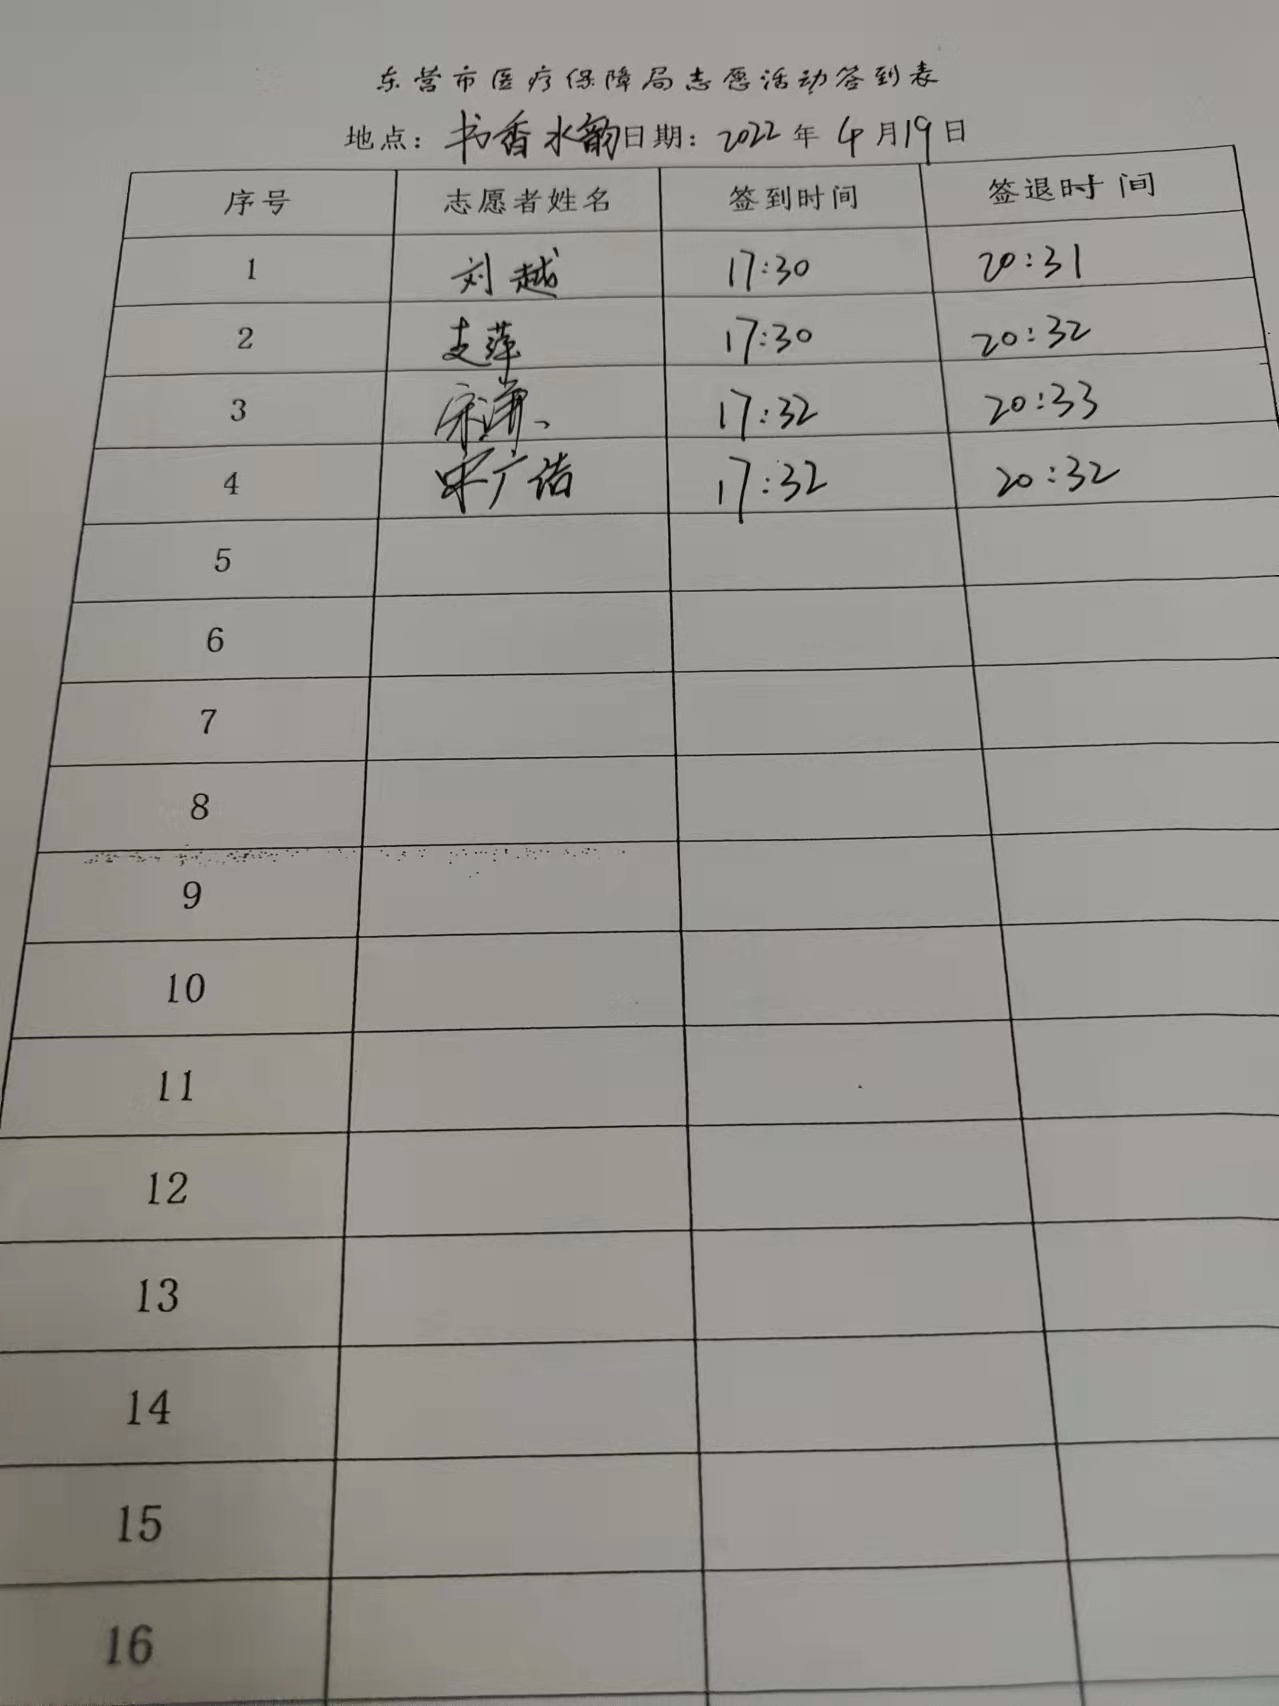 东营市医疗保障局志愿活动签到表
地点：书香水韵日期：2022年4月19日
序号 志愿者姓名 签到时间 签退时间
1 刘越 17:30 20:31
2 支萍 17:30 20:32
3 17:32 20:33
4 宋广洁 17:32 20:32
5
6
7
8
9
10
11
12
13
14
15
16